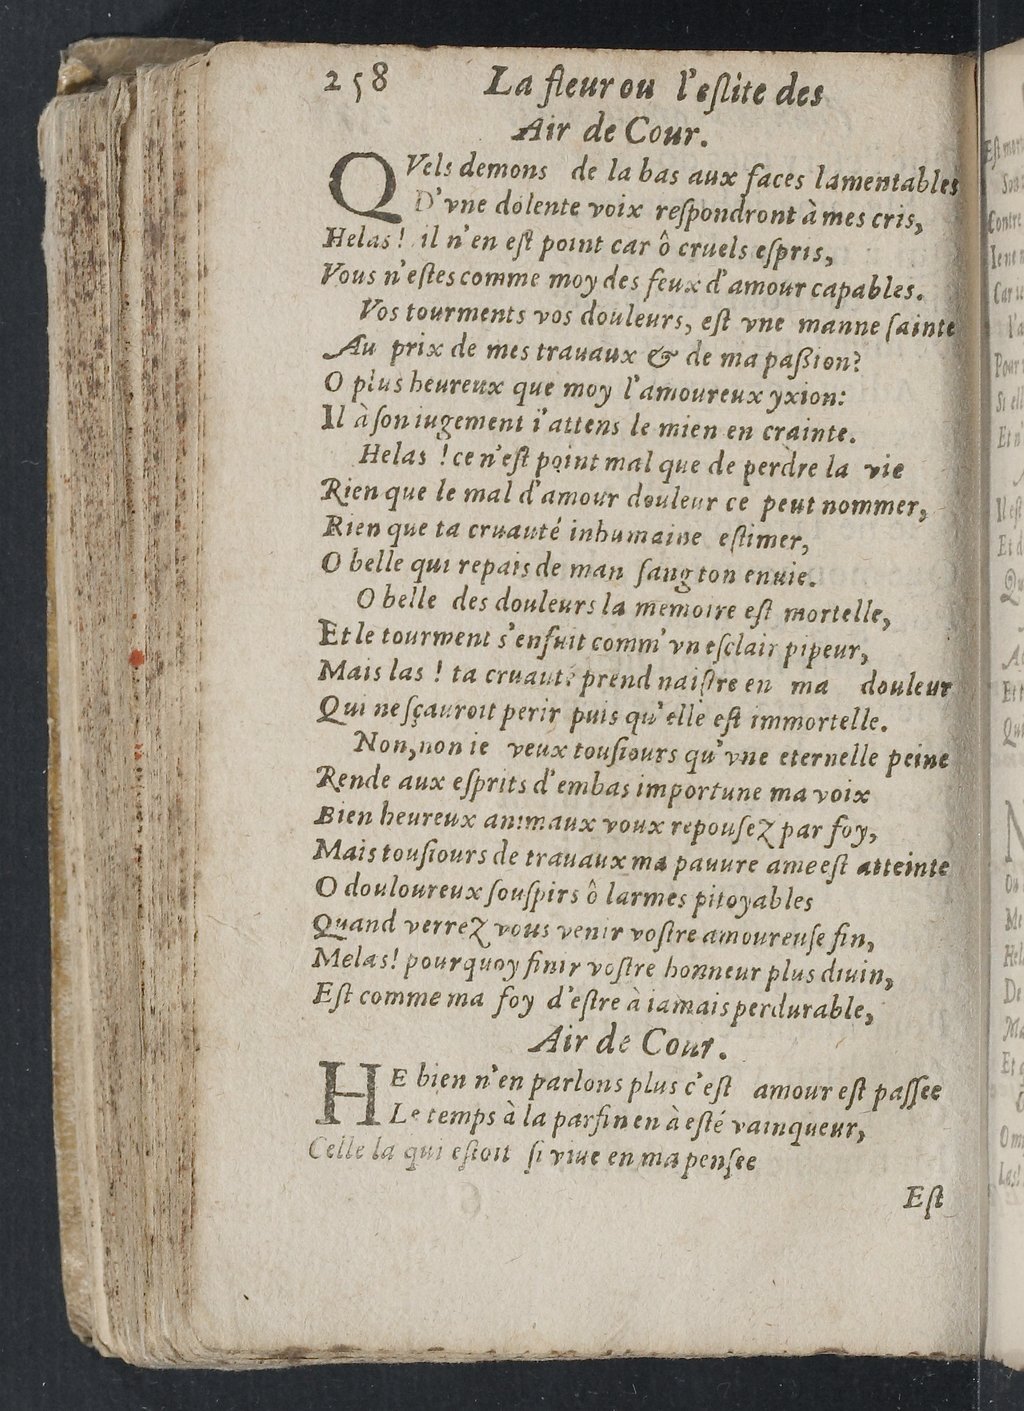 258 La fleur ou l'eslite des
Air de Cour.
QVels demons de la bas aux faces lamentables
D'vne dolente voix reſpondront à mes cris,
Helas! il n'en eſt point car ô cruels eſpris,
Vous n'eſtes comme moy des feux d'amour capables.
Vos tourments vos douleurs, eſt vne manne ſainte
Au prix de mes trauaux & de ma paßion?
O plus heureux que moy l'amoureux yxion:
Il à ſon iugement i'attens le mien en crainte.
Helas ! ce n'eſt point mal que de perdre la vie
Rien que le mal d'amour douleur ce peut nommer,
Rien que ta cruauté inhumaine eſtimer,
O belle qui repais de man ſang ton enuie.
O belle des douleurs la memoire eſt mortelle,
Et le tourment s'enfuit comm' vn eſclair pipeur,
Mais las ! ta cruauté prend naiſtre en ma douleur
Qui ne ſçauroit perir puis qu'elle eſt immortelle.
Non, non ie veux touſiours qu'vne eternelle peine
Rende aux eſprits d'embas importune ma voix
Bien heureux animaux voux repouſez par foy,
Mais touſiours de trauaux ma pauure ame eſt atteinte
O douloureux ſouſpirs ô larmes pitoyables
Quand verrez vous venir voſtre amoureuſe fin,
Melas! pourquoy finir voſtre honneur plus diuin,
Eſt comme ma foy d'eſtre à iamais perdurable,
Air de Cour.
HE bien n'en parlons plus c'eſt amour eſt paſſee
Le temps à la parfin en à eſté vainqueur,
Celle la qui eſtoit ſi viue en ma penſee
Eſt